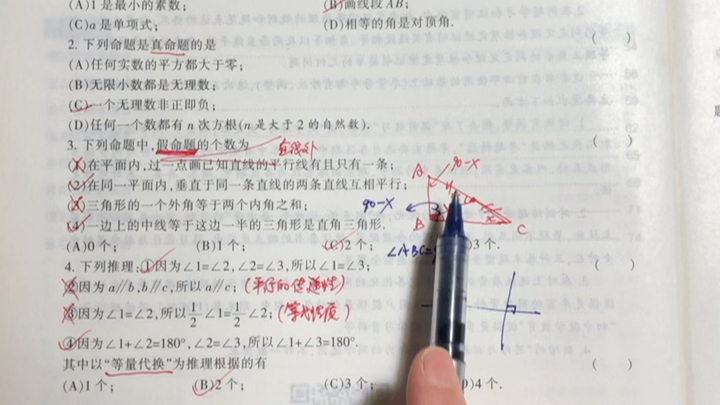 (A)1是最小的素数; (B)画线段AB;
(C)a是单项式; (D)相等的角是对顶角.
2. 下列命题是真命题的是 ( )
(A)任何实数的平方都大于零;
(B)无限小数都是无理数;
(C)一个无理数非正即负;
(D)任何一个数都有n次方根(n是大于2的自然数).
3. 下列命题中,假命题的个数为 ( )
(1)在平面内,过一点画已知直线的平行线有且只有一条;
(2)在同一平面内,垂直于同一条直线的两条直线互相平行;
(3)三角形的一个外角等于两个内角之和;
(4)一边上的中线等于这边一半的三角形是直角三角形.
(A)0个; (B)1个; (C)2个; 3个.
A 90-X
90-X
B C
∠ABC=
4. 下列推理:①因为∠1=∠2,∠2=∠3,所以∠1=∠3; ( )
②因为a//b,b//c,所以a//c; (平行的传递性)
③因为∠1=∠2,所以1/2∠1=1/2∠2; (等式性质)
④因为∠1+∠2=180°,∠2=∠3,所以∠1+∠3=180°.
其中以“等量代换”为推理根据的有 ( )
(A)1个; (B)2个; (C)3个; D)4个.